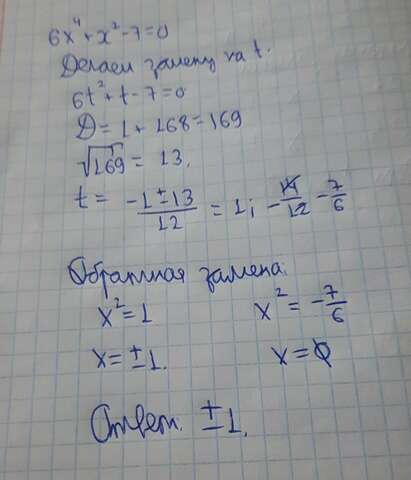 6x⁴+x²-7=0
Делаем замену на t.
6t²+t-7=0
D=1+168=169
√169=13.
t= (-1±13)/12 = 1; -14/12 -7/6
Обратная замена:
x²=1 x²=-7/6
x=±1. x=∅
Ответ. ±1.